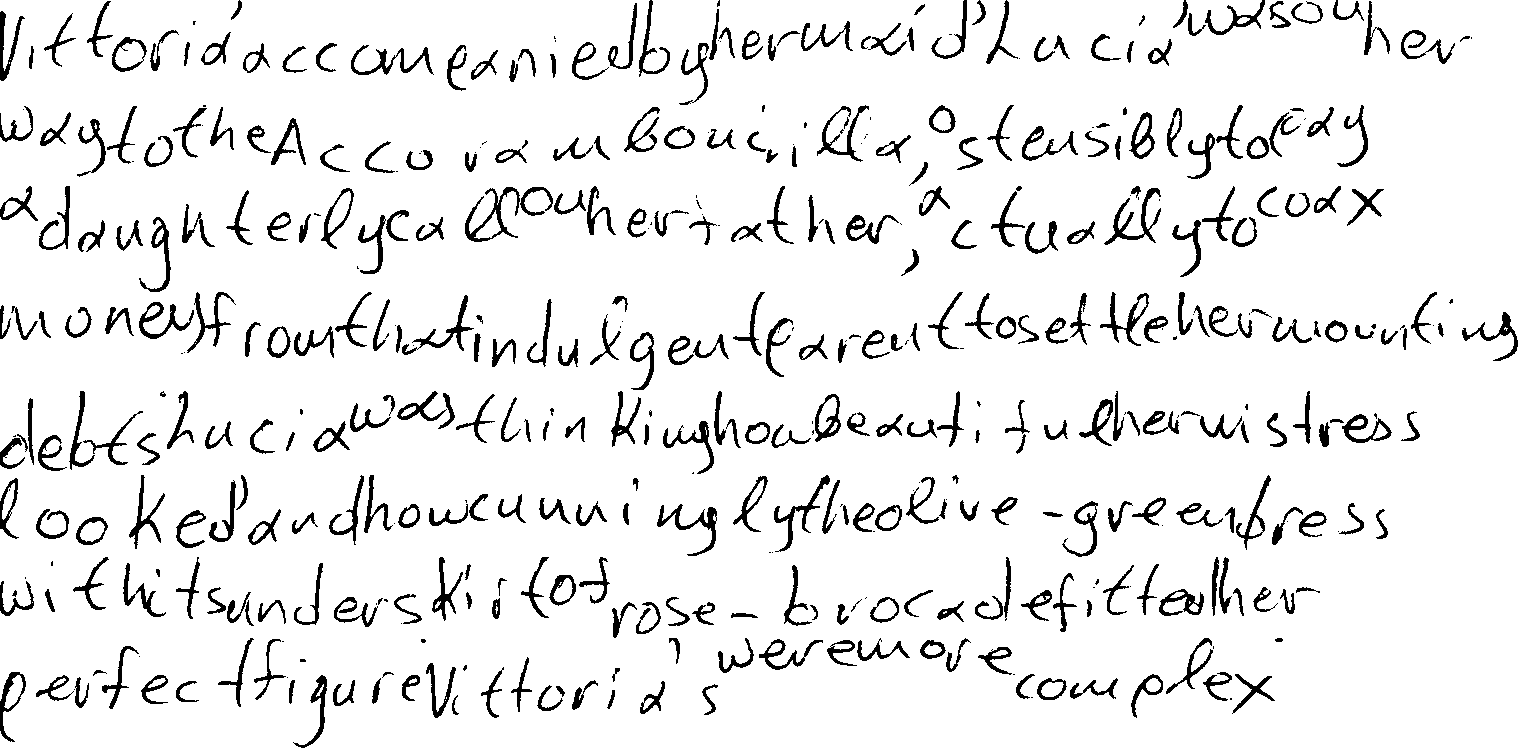 Vittoria, accompanied by her maid, Lucia, was on her
way to the Accoramboni villa, ostensibly to pay
a daughterly call on her father, actually to coax
money from that indulgent parent to settle her mounting
debts. Lucia was thinking how beautiful her mistress
looked, and how cunningly the olive-green dress
with its underskirt of rose-brocade fitted her
perfect figure. Vittoria's were more complex